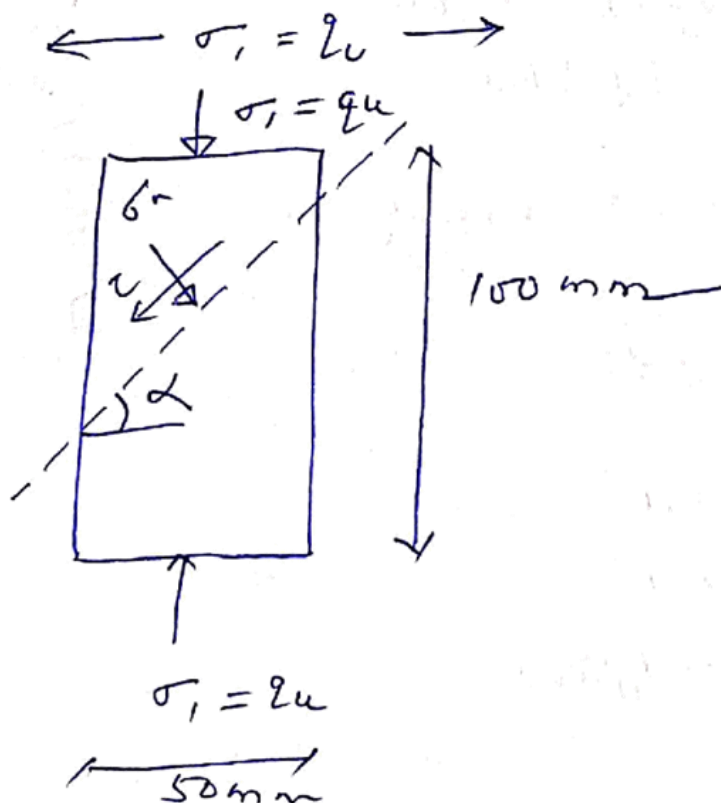 σ₁ = qu
σ₁ = qu
σn
τ
α
100 mm
σ₁ = qu
50mm